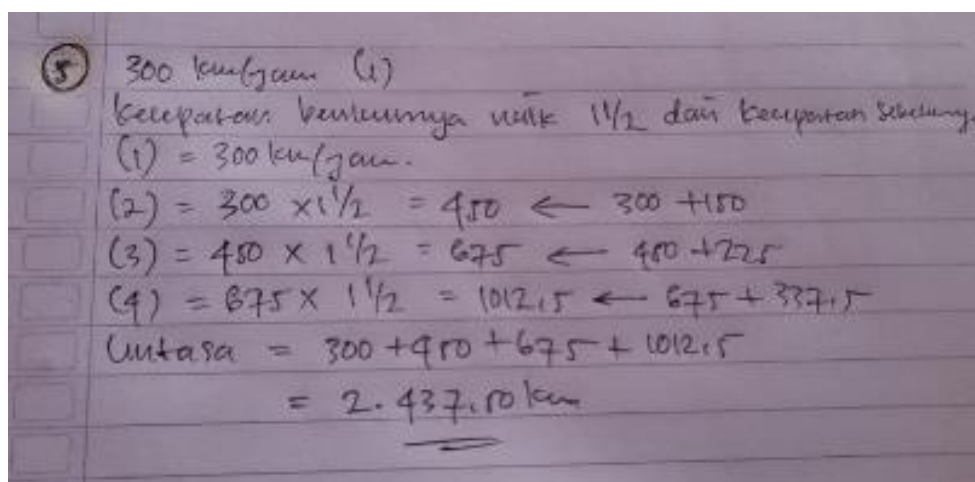 5 300 km/jam (1)
kecepatan berikutnya naik 1 1/2 dari kecepatan sebelumnya
(1) = 300 km/jam.
(2) = 300 x 1 1/2 = 450 ← 300 + 150
(3) = 450 x 1 1/2 = 675 ← 450 + 225
(4) = 675 x 1 1/2 = 1012,5 ← 675 + 337,5
= 300 + 450 + 675 + 1012,5
= 2.437,50 km